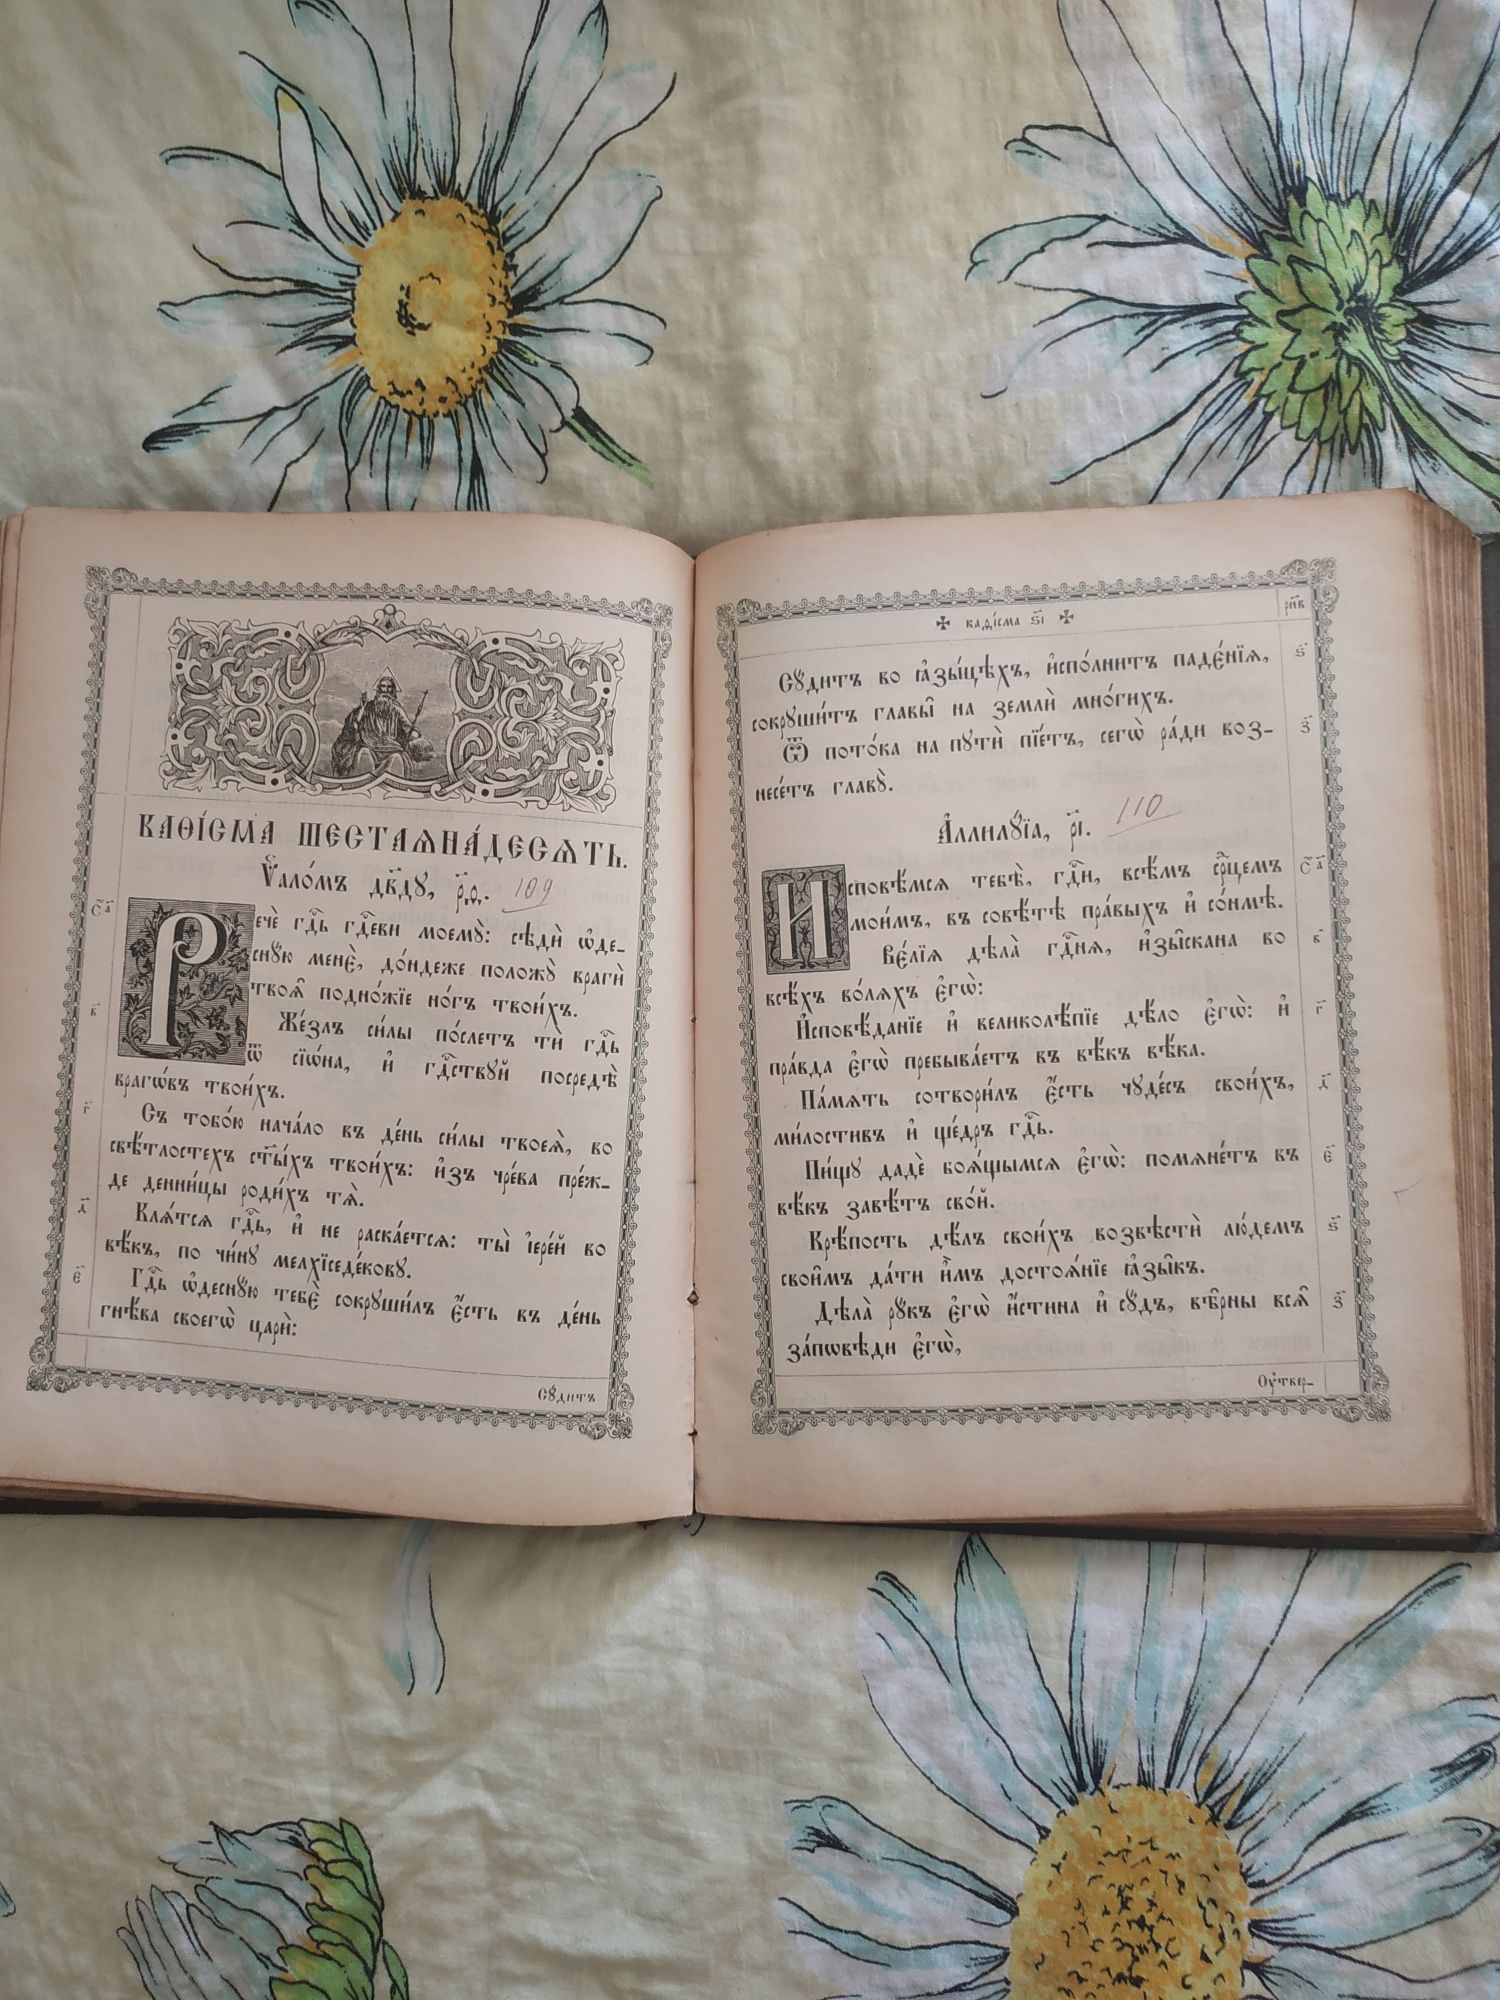 КАѲІ́СМА ШЕСТАЯНА́ДЕСѦТЬ.
Ѱало́мъ дв҃ду, р҃ѳ. 109
с҃а
Речѐ гдⷭ҇ь гдⷭ҇еви моемꙋ̀: сѣдѝ ѡ҆де-
снꙋ́ю менє̀, до́ндеже положꙋ̀ врагѝ
твоѧ̑ подно́жїе но́гъ твои́хъ.
в҃
Же́злъ си́лы по́слетъ тѝ гдⷭ҇ь
ѿ сїѡ́на, и҆ гдⷭ҇ствуй посредѣ̀
врагѡ́въ твои́хъ.
г҃
Съ тобо́ю нача́ло въ де́нь си́лы твоеѧ̀, во
свѣ́тлостехъ ст҃ы́хъ твои́хъ: и҆зъ чре́ва пре́ж-
де денни́цы роди́хъ тѧ̀.
д҃
Клѧ́тсѧ гдⷭ҇ь, и҆ не раска́етсѧ: ты̀ і҆ере́й во
вѣ́къ, по чи́ну мелхїседе́кову.
є҃
Гдⷭ҇ь ѡ҆деснꙋ́ю тебє̀ сокрꙋши́лъ є҆́сть въ де́нь
гнѣ́ва своегѡ̀ цари̑:
Сꙋ́дитъ
✠ каѳі́сма ѕ҃і ✠
рн҃в
ѕ҃
Сꙋ́дитъ во ꙗ҆зы́цѣхъ, и҆спо́лнитъ паде́нїѧ,
сокрꙋши́тъ главы̑ на землѝ мно́гихъ.
з҃
Ѿ пото́ка на пꙋтѝ пїе́тъ, сегѡ̀ ра́ди воз-
несе́тъ главꙋ̀.
А҆ллилꙋ́їа, р҃і. 110
с҃а
И҆сповѣ́мсѧ тебѣ̀, гдⷭ҇и, всѣ́мъ срⷣцемъ
мои́мъ, въ совѣ́тѣ пра́выхъ и҆ со́нмѣ.
в҃
Ве́лїѧ дѣла̀ гдⷭ҇нѧ, и҆зы̑скана во
всѣ́хъ во́лѧхъ є҆гѡ̀:
г҃
И҆сповѣ́данїе и҆ великолѣ́пїе дѣ́ло є҆гѡ̀: и҆
пра́вда є҆гѡ̀ пребыва́етъ въ вѣ́къ вѣ́ка.
д҃
Па́мѧть сотвори́лъ є҆́сть чуде́съ свои́хъ,
ми́лостивъ и҆ ще́дръ гдⷭ҇ь.
є҃
Пи́щу дадѐ боѧ́щымсѧ є҆гѡ̀: помѧне́тъ въ
вѣ́къ завѣ́тъ сво́й.
ѕ҃
Крѣ́пость дѣ́лъ свои́хъ возвѣстѝ лю́демъ
свои̑мъ да́ти и҆̀мъ достоѧ́нїе ꙗ҆зы̑къ.
з҃
Дѣла̀ рꙋ́къ є҆гѡ̀ и҆́стина и҆ сꙋ́дъ, вѣ̑рны всѧ̑
за́пѡвѣди є҆гѡ̀,
Оу҆твер-